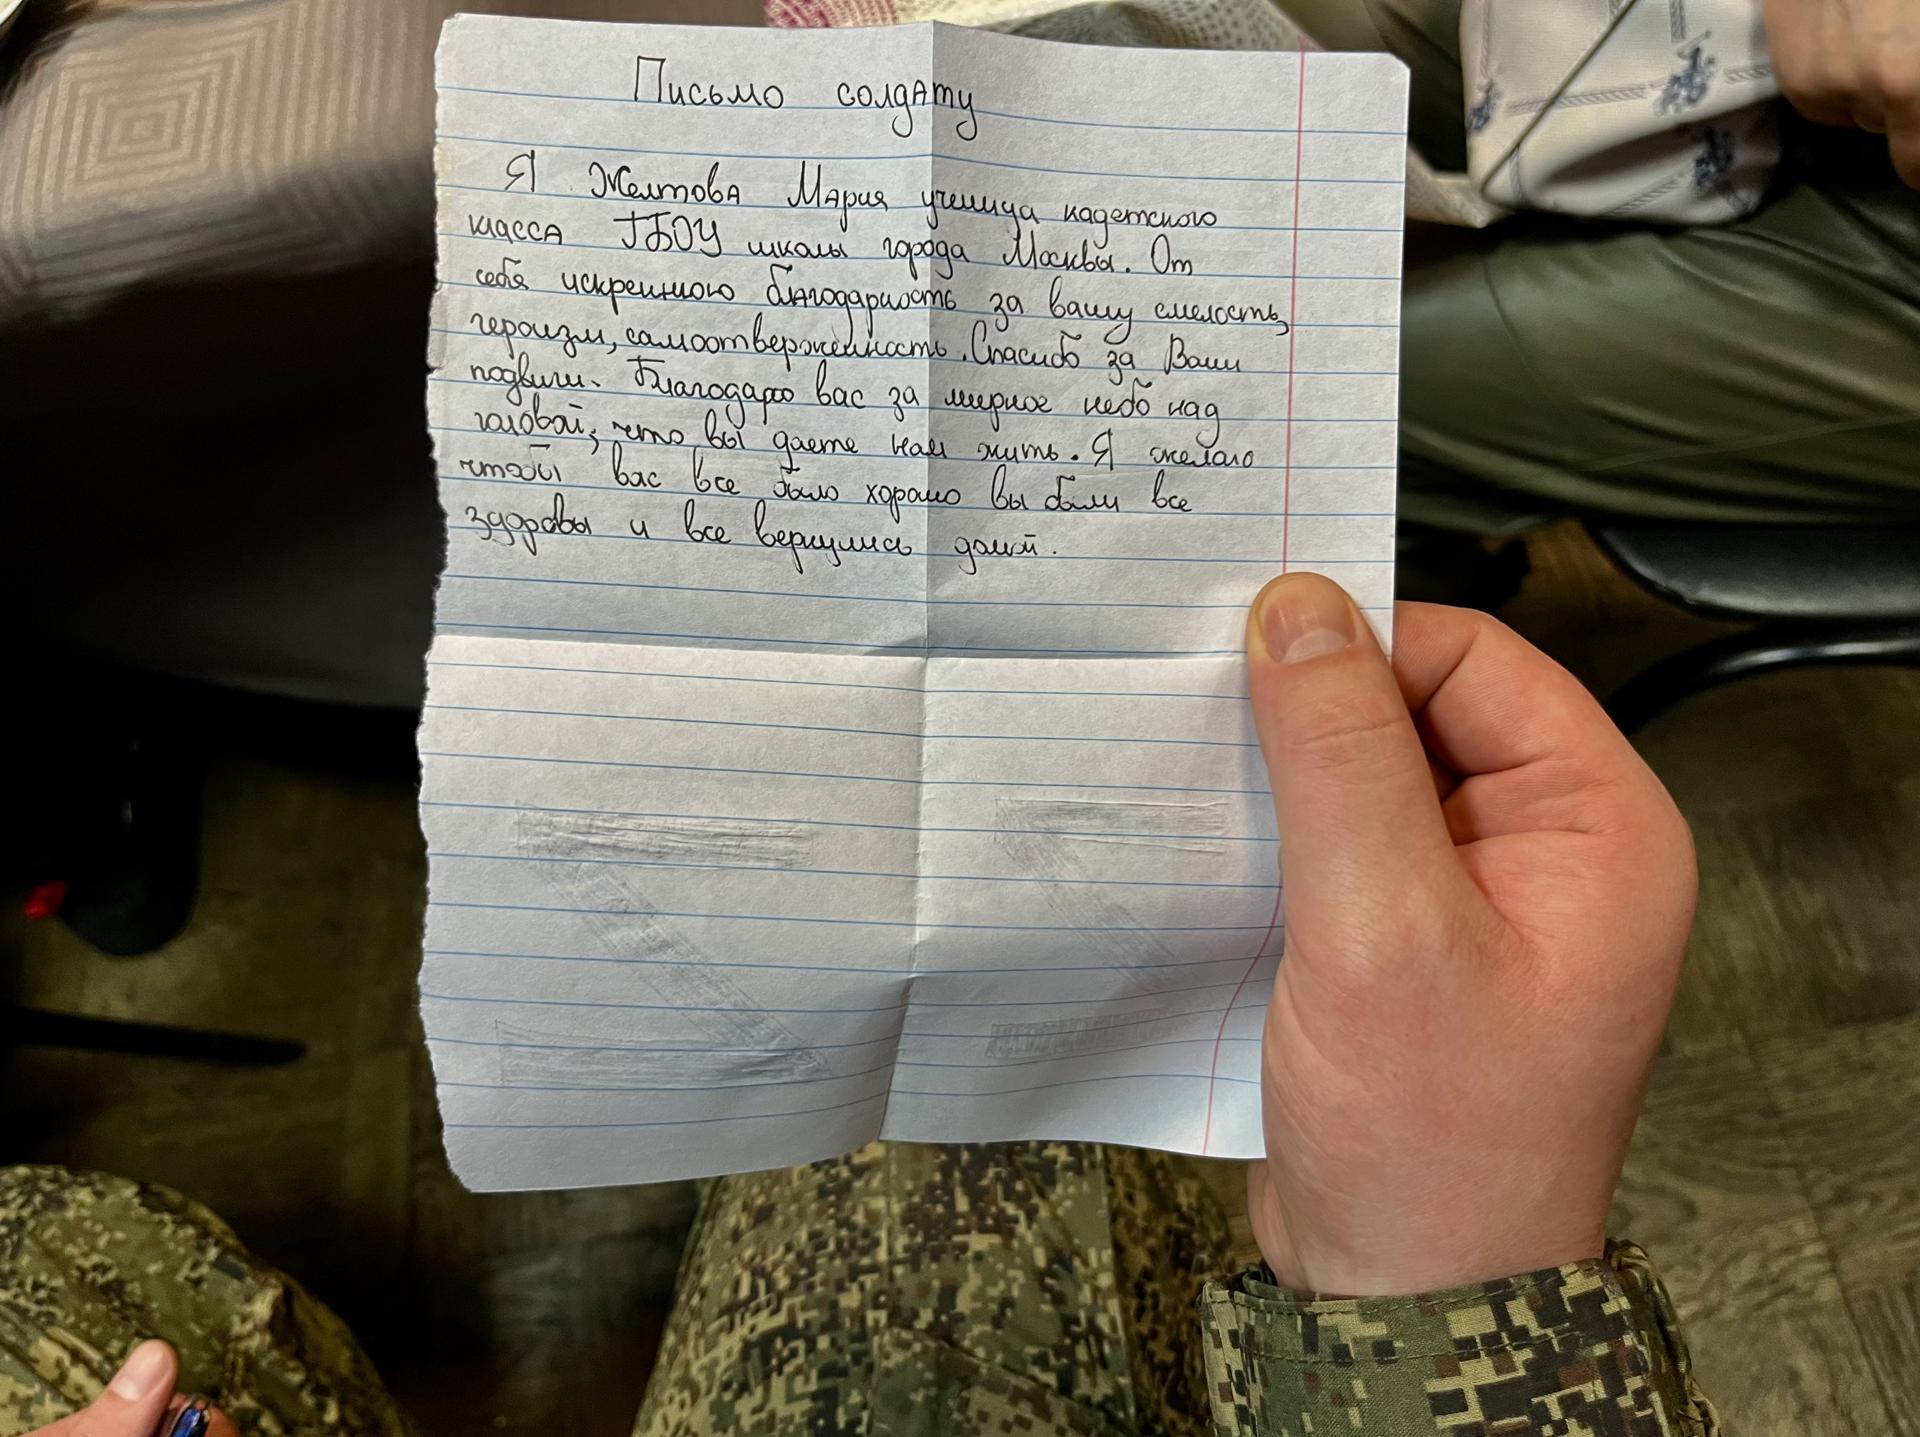 Письмо солдату
Я Желтова Мария ученица кадетского
класса ГБОУ школы города Москвы. От
себя искреннюю благодарность за вашу смелость,
героизм, самоотверженность. Спасибо за Ваши
подвиги. Благодарю вас за мирное небо над
головой, что вы даете нам жить. Я желаю
чтобы вас все было хорошо вы были все
здоровы и все вернулись домой.